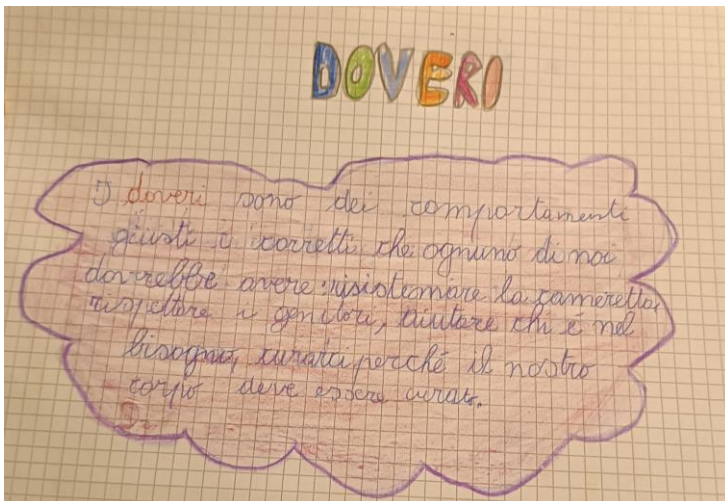 DOVERI
I doveri sono dei comportamenti
giusti e corretti che ognuno di noi
dovrebbe avere: risistemare la cameretta,
rispettare i genitori, aiutare chi è nel
bisogno, curarci perché il nostro
corpo deve essere curato.